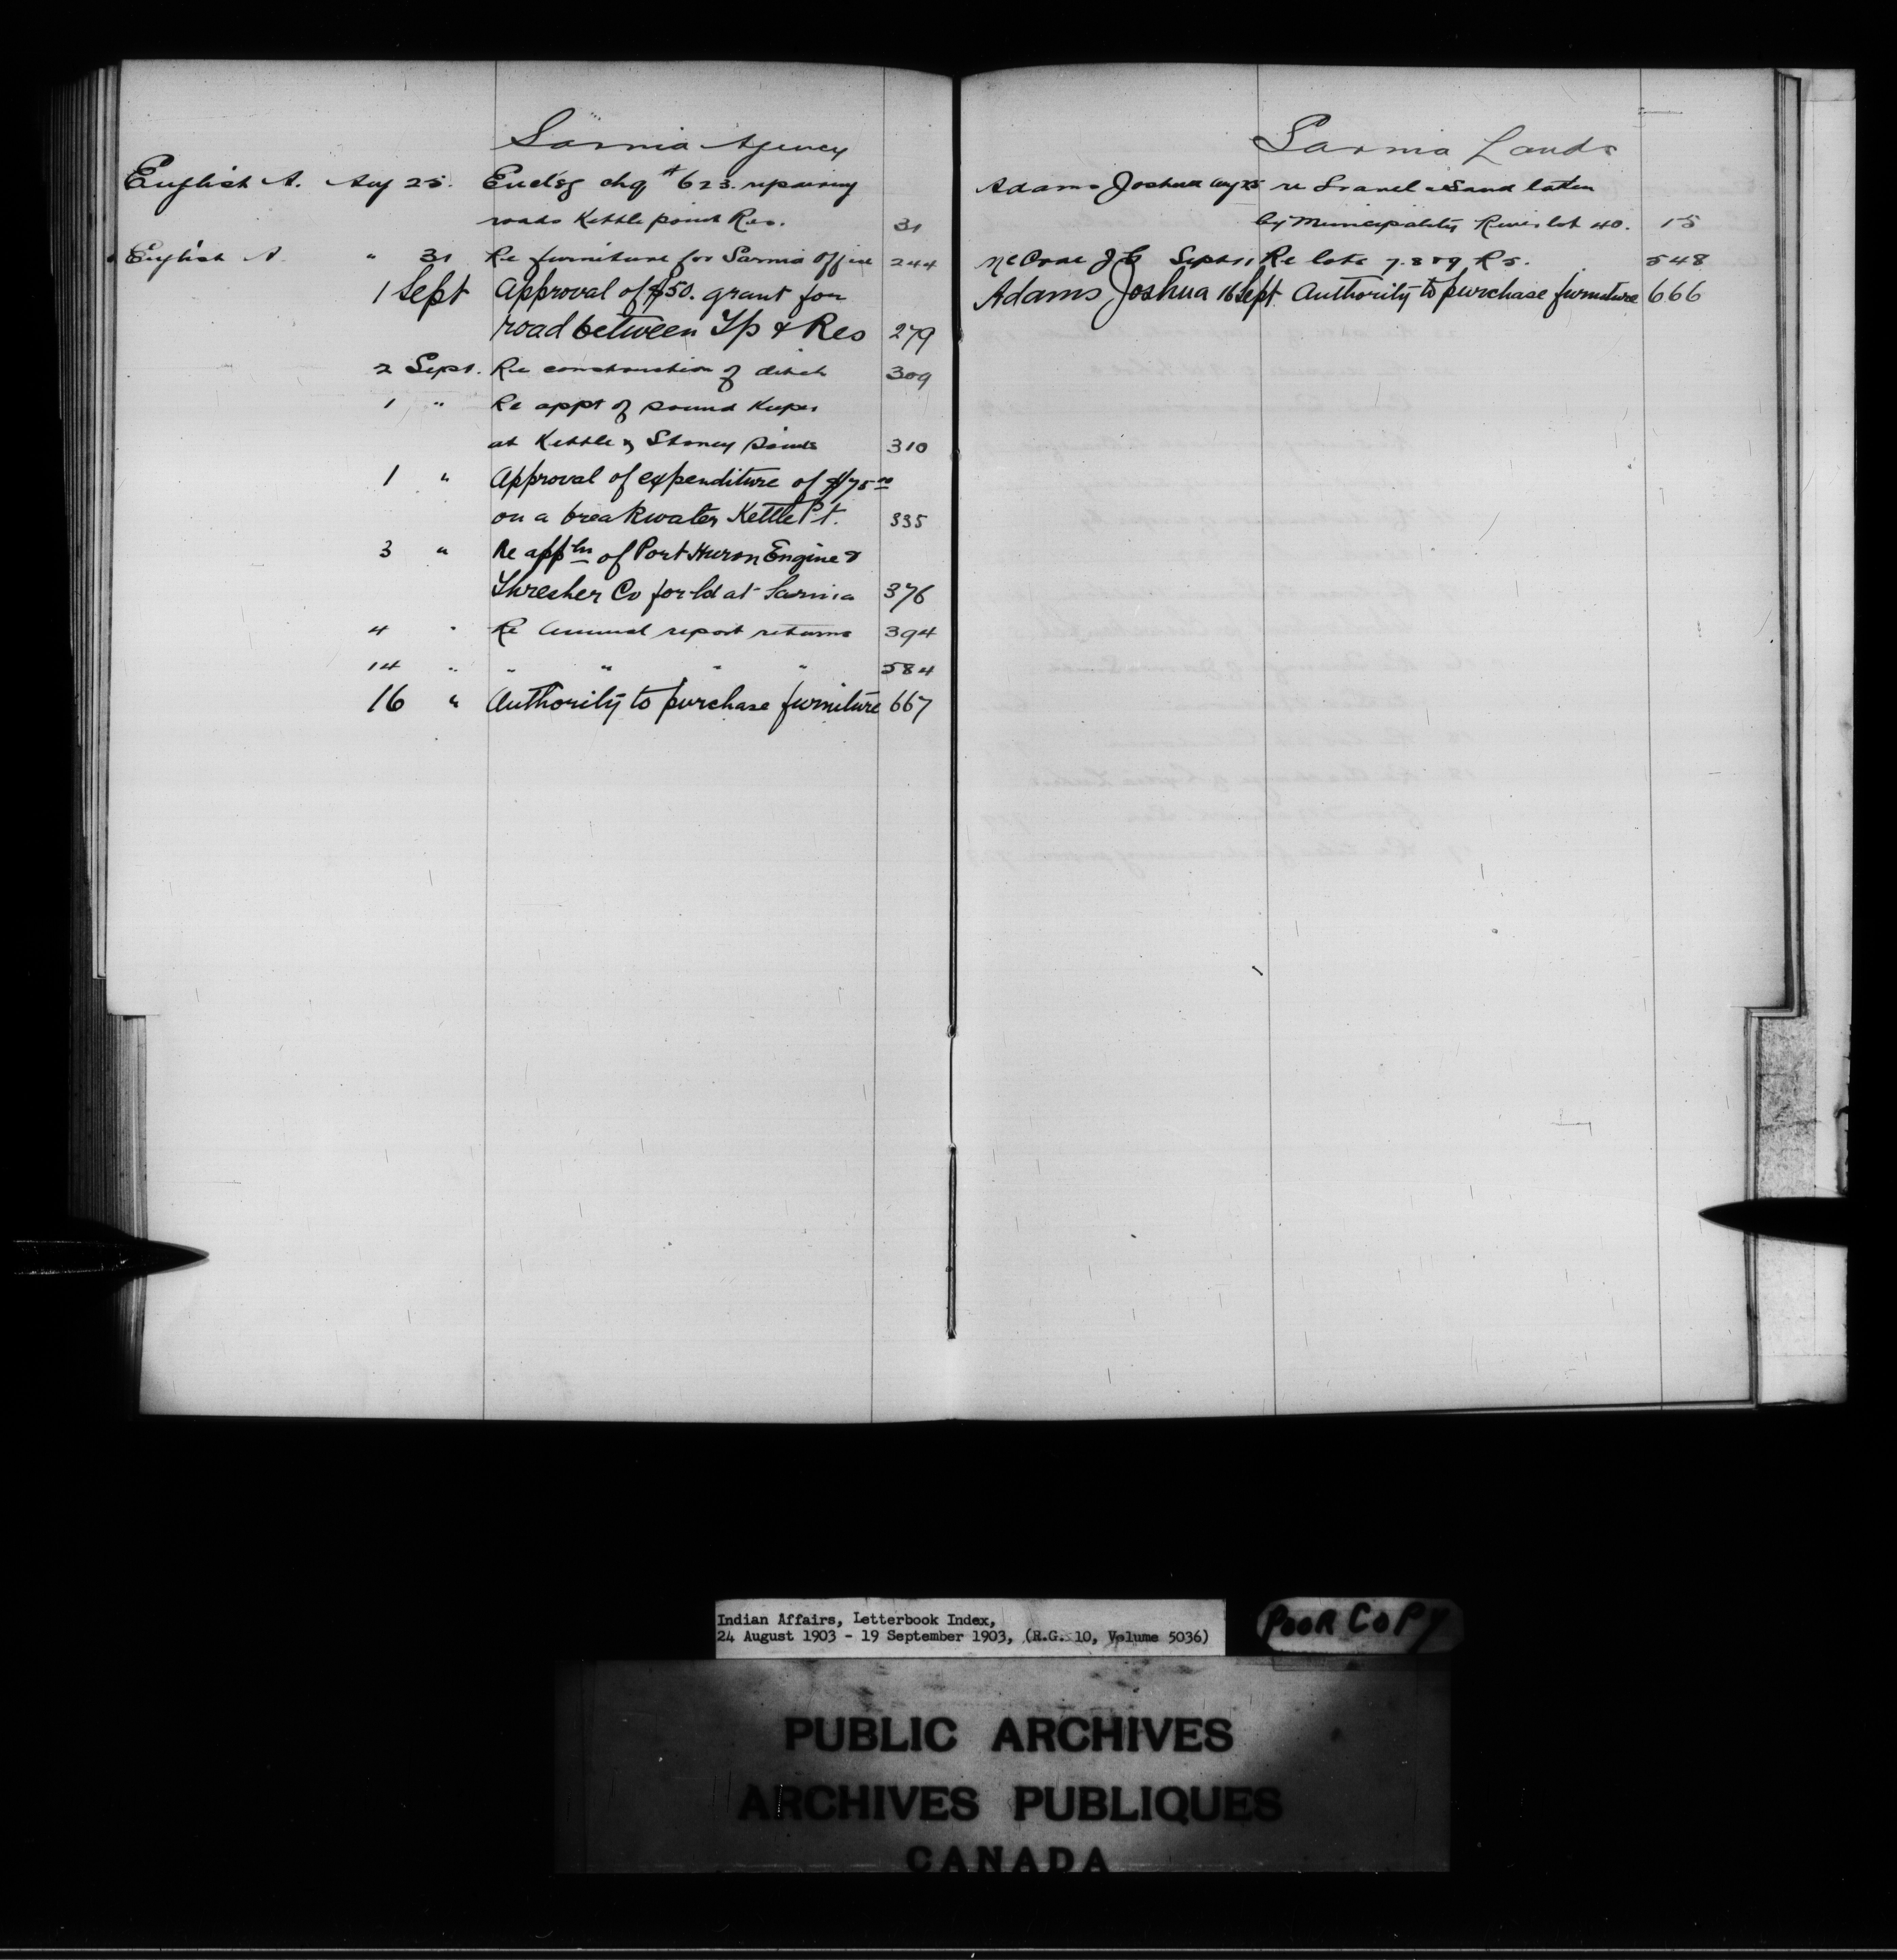 Sarnia Agency
English A. Aug 25. Encl'sg chq # 623. repairing
roads Kettle point Res. 31
English A. " 31 Re furniture for Sarnia office 244
1 Sept Approval of $50. grant for
road between Tp & Res 279
2 Sept. Re construction of ditch 309
1 " Re appt of pound keeper
at Kettle & Stoney points 310
1 " Approval of expenditure of $75.00
on a breakwater Kettle Pt. 335
3 " Re appln of Port Huron Engine &
Thresher Co for ld at Sarnia 376
4 " Re Annual report returns 394
14 " " " " " 584
16 " Authority to purchase furniture 667
Sarnia Lands
Adams Joshua Aug 25 re Gravel & Sand taken
by Municipality River lot 40. 15
McCrae J C Sept 11 Re lots 7. 8 & 9 R 5. 548
Adams Joshua 16 Sept. Authority to purchase furniture 666
Indian Affairs, Letterbook Index,
24 August 1903 - 19 September 1903, (R.G. 10, Volume 5036)
POOR COPY
PUBLIC ARCHIVES
ARCHIVES PUBLIQUES
CANADA